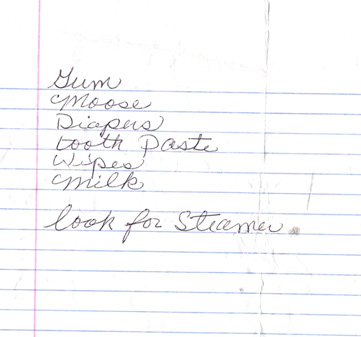 Gum
Moose
Diapers
tooth Paste
Wipes
Milk
look for Steamer